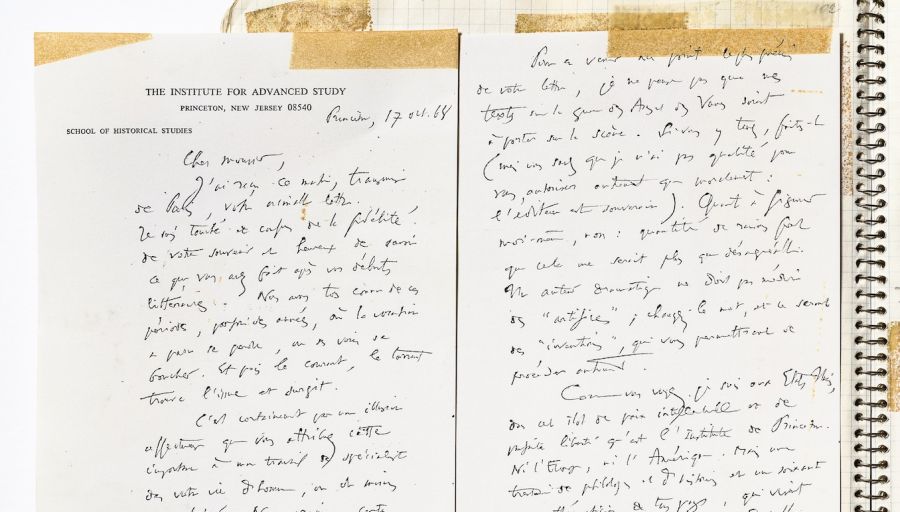 THE INSTITUTE FOR ADVANCED STUDY
PRINCETON, NEW JERSEY 08540
SCHOOL OF HISTORICAL STUDIES
Princeton, 17 oct. 68
Cher monsieur,
J'ai reçu ce matin, transmise
de Paris, votre aimable lettre.
Je suis touché et confus de la fidélité
de votre souvenir et heureux de savoir
ce que vous avez fait après vos débuts
littéraires. Nous avons tous connu de ces
périodes, parfois des années, où la vocation
a paru se perdre, ou en voie de
. Et puis le courant, le torrent
trouve l'issue et surgit.
C'est certainement par une illusion
affectueuse que vous attribuez cette
importance à mon travail de spécialiste
dans votre vie d'homme, ou du moins
102
Pour en venir au point le plus précis
de votre lettre, je ne pense pas que mes
textes sur la guerre des Ases et des Vanes soient
à porter sur la scène. Si vous y tenez, faites-le
(mais vous savez que je n'ai pas qualité pour
vous autoriser autrement que moralement :
l'éditeur est souverain). Quant à figurer
moi-même, non : quantité de raisons font
que cela me serait plus que désagréable.
Un auteur dramatique ne doit pas
des "artifices" ; changez le mot, et ce seront
des "inventions", qui vous permettront de
procéder autrement.
Comme vous voyez, je suis aux Etats-Unis,
dans cet îlot de paix intellectuelle et de
parfaite liberté qu'est l'Institute de Princeton.
Ni l'Europe, ni l'Amérique. Mais une
de philologues et d'historiens et un
de tous pays, qui vivent